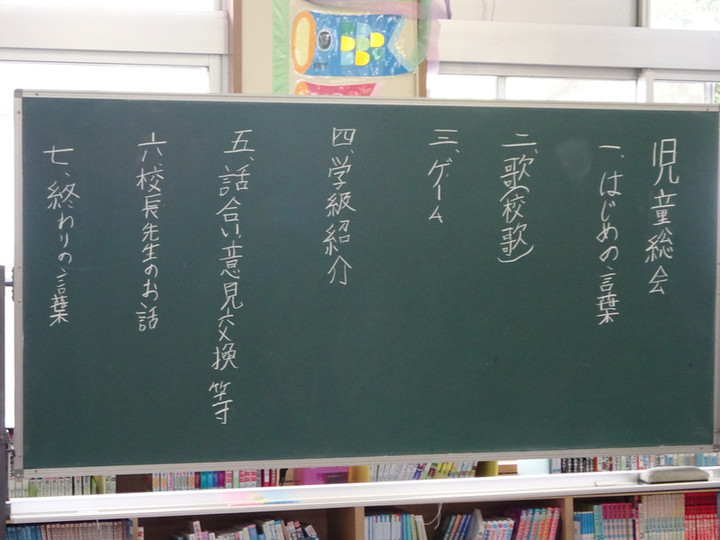 児童総会
一、はじめの言葉
二、歌(校歌)
三、ゲーム
四、学級紹介
五、話合い、意見交換 等
六、校長先生のお話
七、終わりの言葉